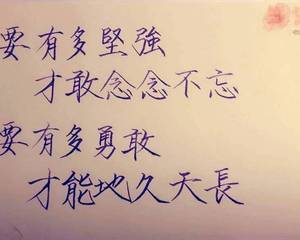 要有多堅強
才敢念念不忘
要有多勇敢
才能地久天長